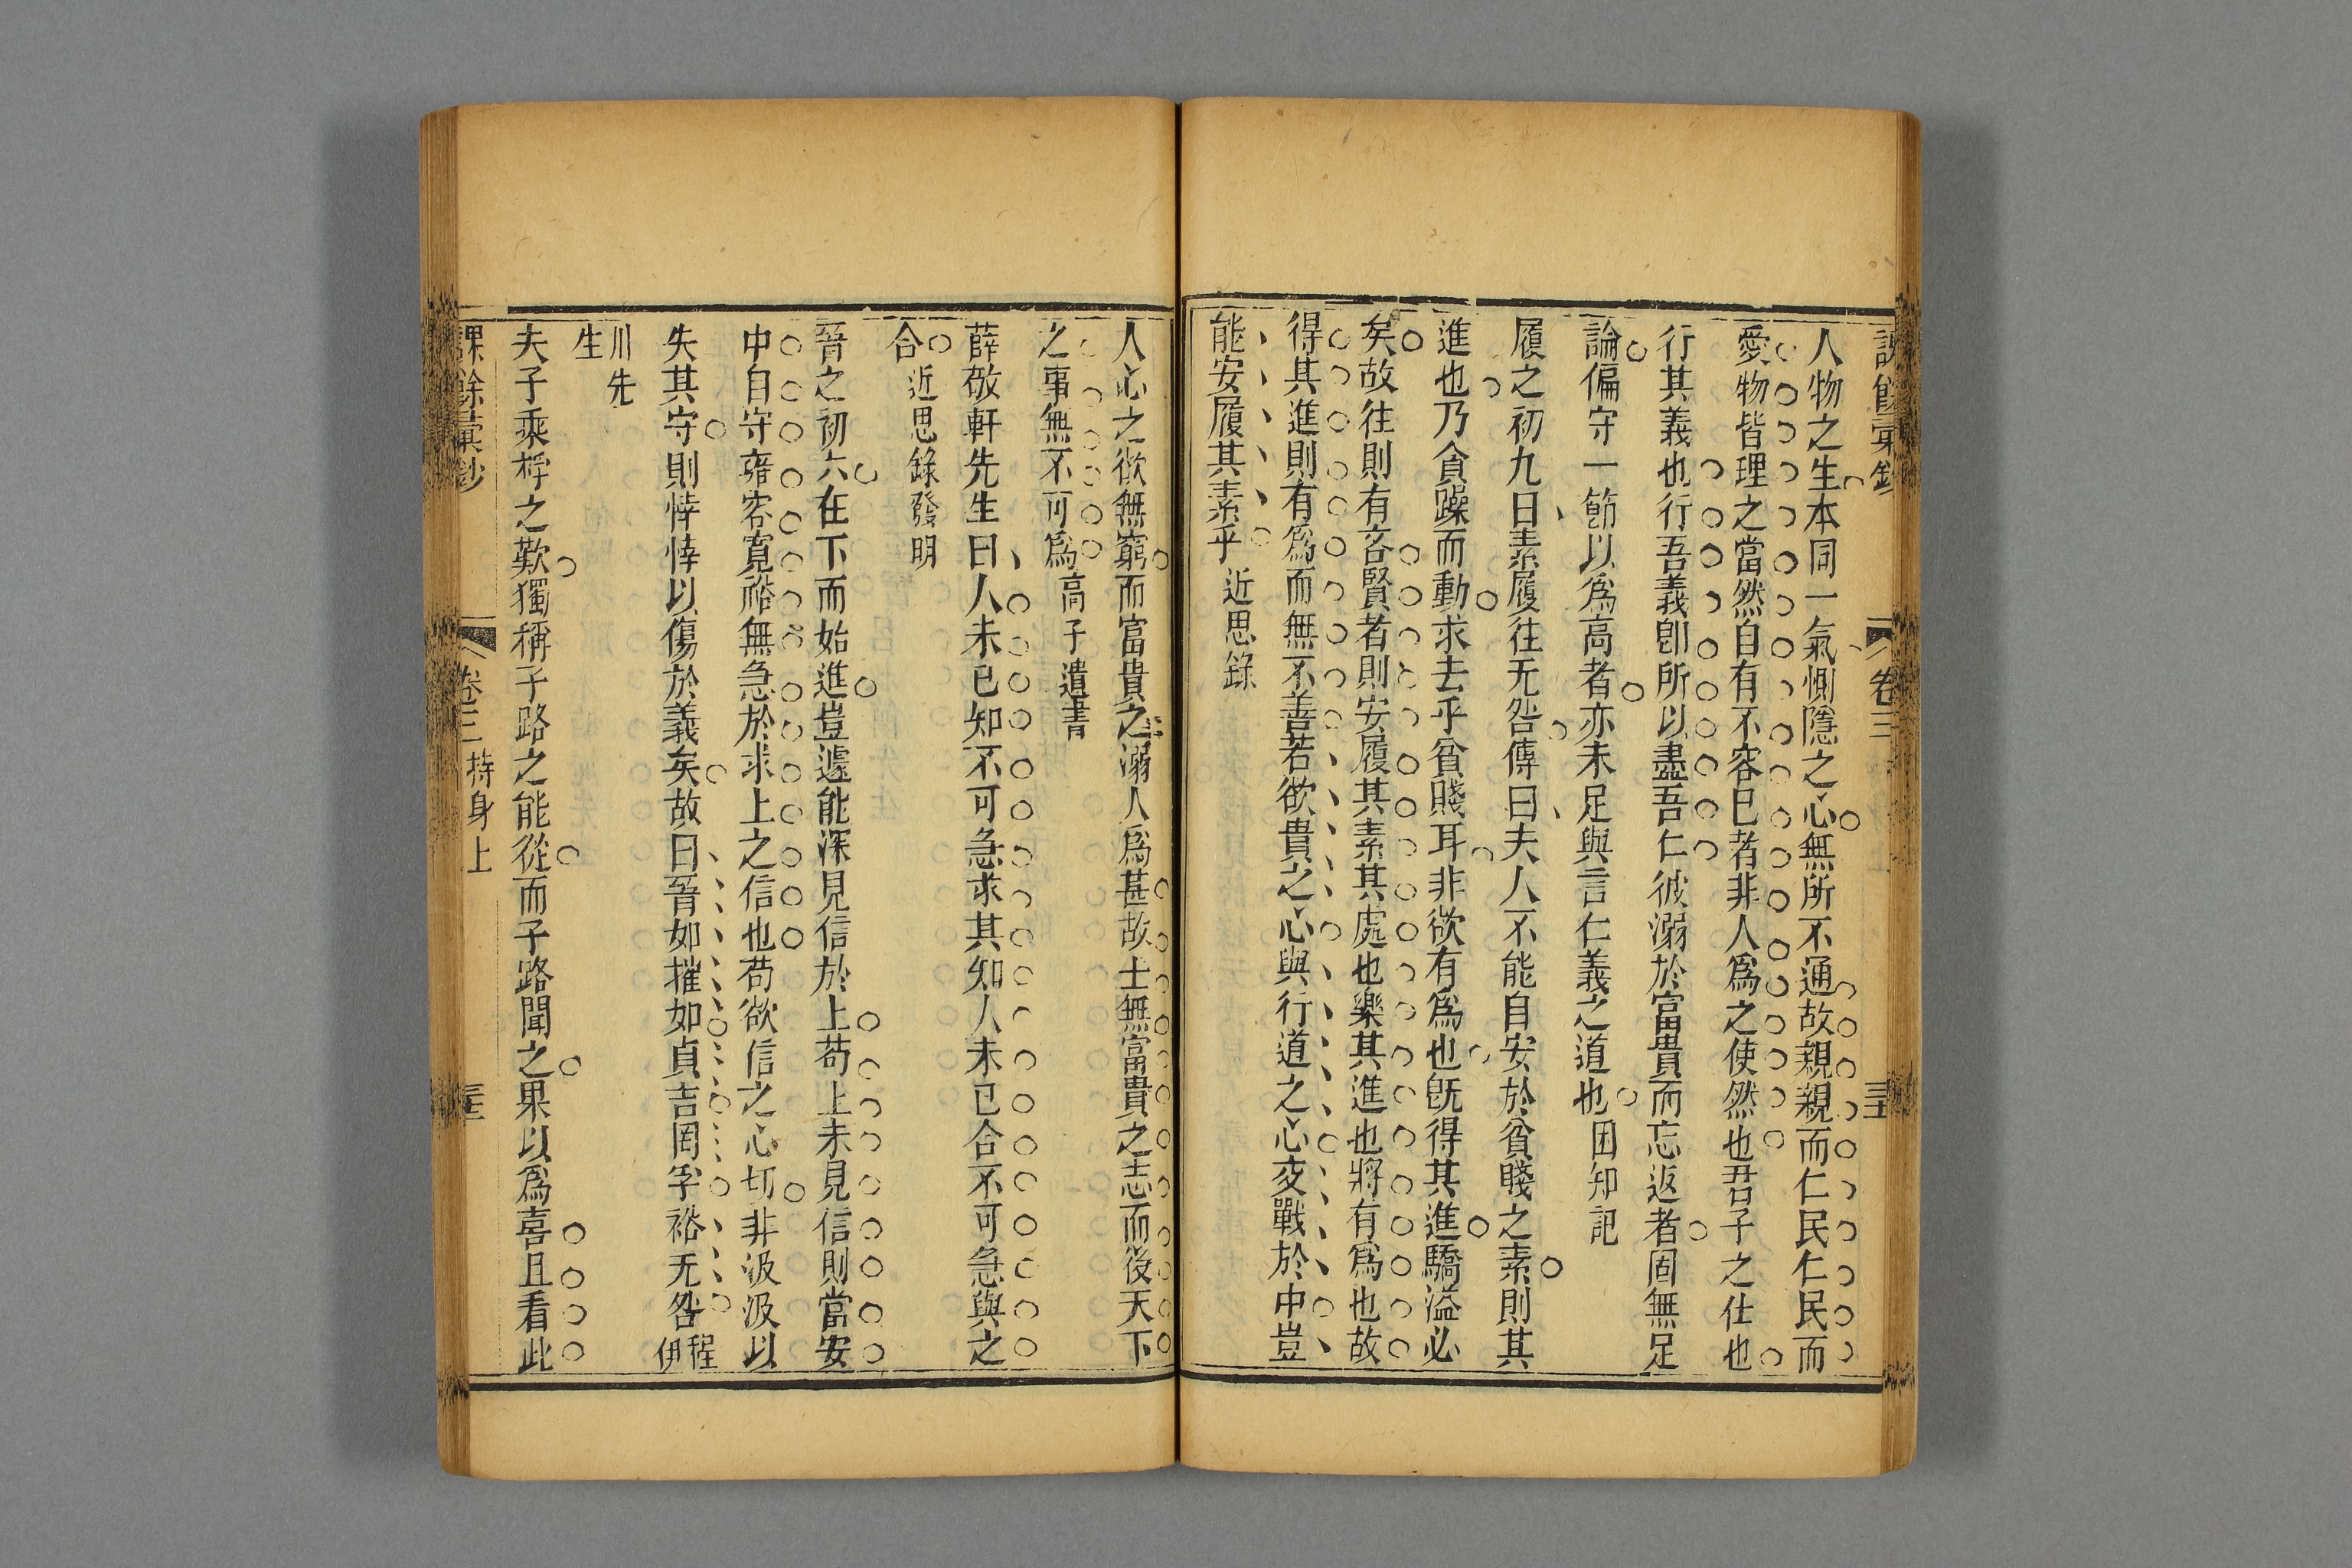 課餘彙鈔 卷三
人物之生本同一氣惻隱之心無所不通故親親而仁民仁民而
愛物皆理之當然自有不容已者非人爲之使然也君子之仕也
行其義也行吾義卽所以盡吾仁彼溺於富貴而忘返者固無足
論偏守一節以爲高者亦未足與言仁義之道也 困知記
履之初九曰素履往无咎傳曰夫人不能自安於貧賤之素則其
進也乃貪躁而動求去乎貧賤耳非欲有爲也旣得其進驕溢必
矣故往則有吝賢者則安履其素其處也樂其進也將有爲也故
得其進則有爲而無不善若欲貴之心與行道之心交戰於中豈
能安履其素乎 近思錄
人心之欲無窮而富貴之溺人爲甚故士無富貴之志而後天下
之事無不可爲 高子遺書
薛敬軒先生曰人未已知不可急求其知人未已合不可急與之
合 近思錄發明
晉之初六在下而始進豈遽能深見信於上苟上未見信則當安
中自守雍容寬裕無急於求上之信也苟欲信之心切非汲汲以
失其守則悻悻以傷於義矣故曰晉如摧如貞吉罔孚裕无咎 程伊
川先
生
夫子乘桴之歎獨稱子路之能從而子路聞之果以爲喜且看此
課餘彙鈔 卷三 持身上